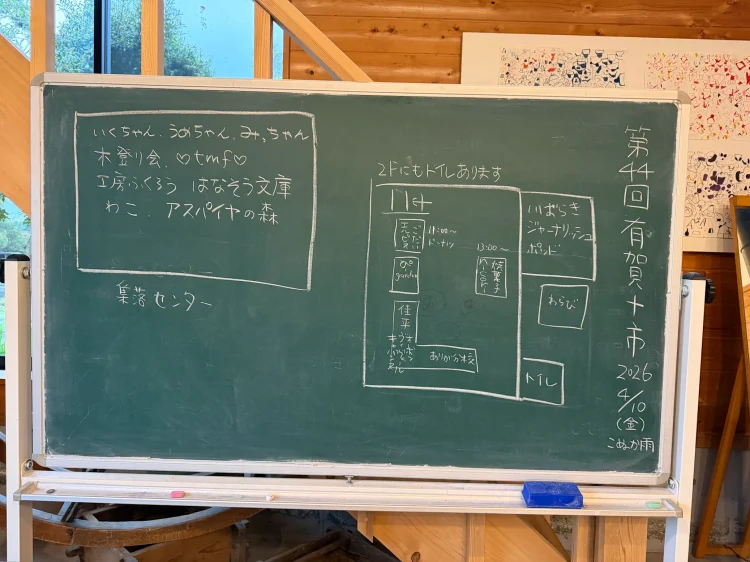 いくちゃん、うめちゃん、みっちゃん
木登り会、♡tmf♡
工房ふくろう はなそう文庫
わこ、アスパイヤの森
集落センター
2Fにもトイルあります
11:00〜
ドーナツ
13:00〜
焼菓子
garden
佳平
ありがた校
川ばらき
ジャーナリッシュ
ポッド
わらび
トイレ
第44回有賀十市
2026
4/10
(金)
こぬか雨